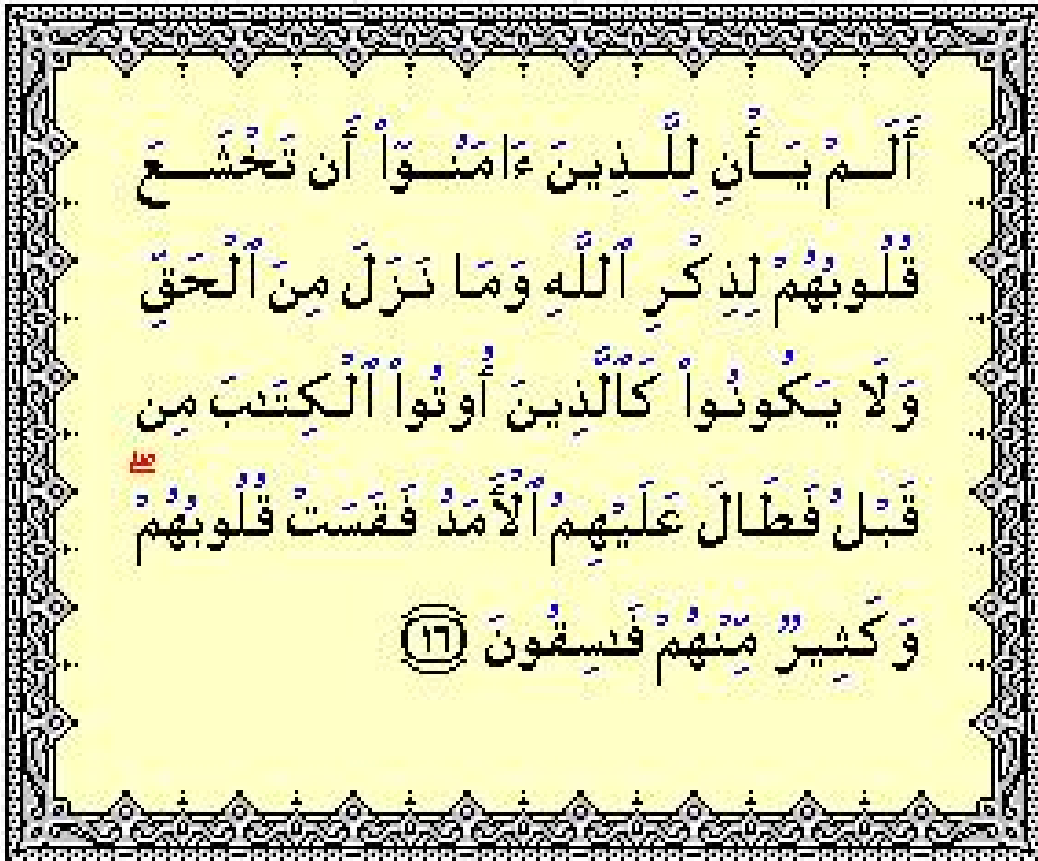 أَلَمْ يَأْنِ لِلَّذِينَ ءَامَنُوٓا۟ أَن تَخْشَعَ
قُلُوبُهُمْ لِذِكْرِ ٱللَّهِ وَمَا نَزَلَ مِنَ ٱلْحَقِّ
وَلَا يَكُونُوا۟ كَٱلَّذِينَ أُوتُوا۟ ٱلْكِتَـٰبَ مِن
قَبْلُ فَطَالَ عَلَيْهِمُ ٱلْأَمَدُ فَقَسَتْ قُلُوبُهُمْ ۖ
وَكَثِيرٌ مِّنْهُمْ فَـٰسِقُونَ ١٦